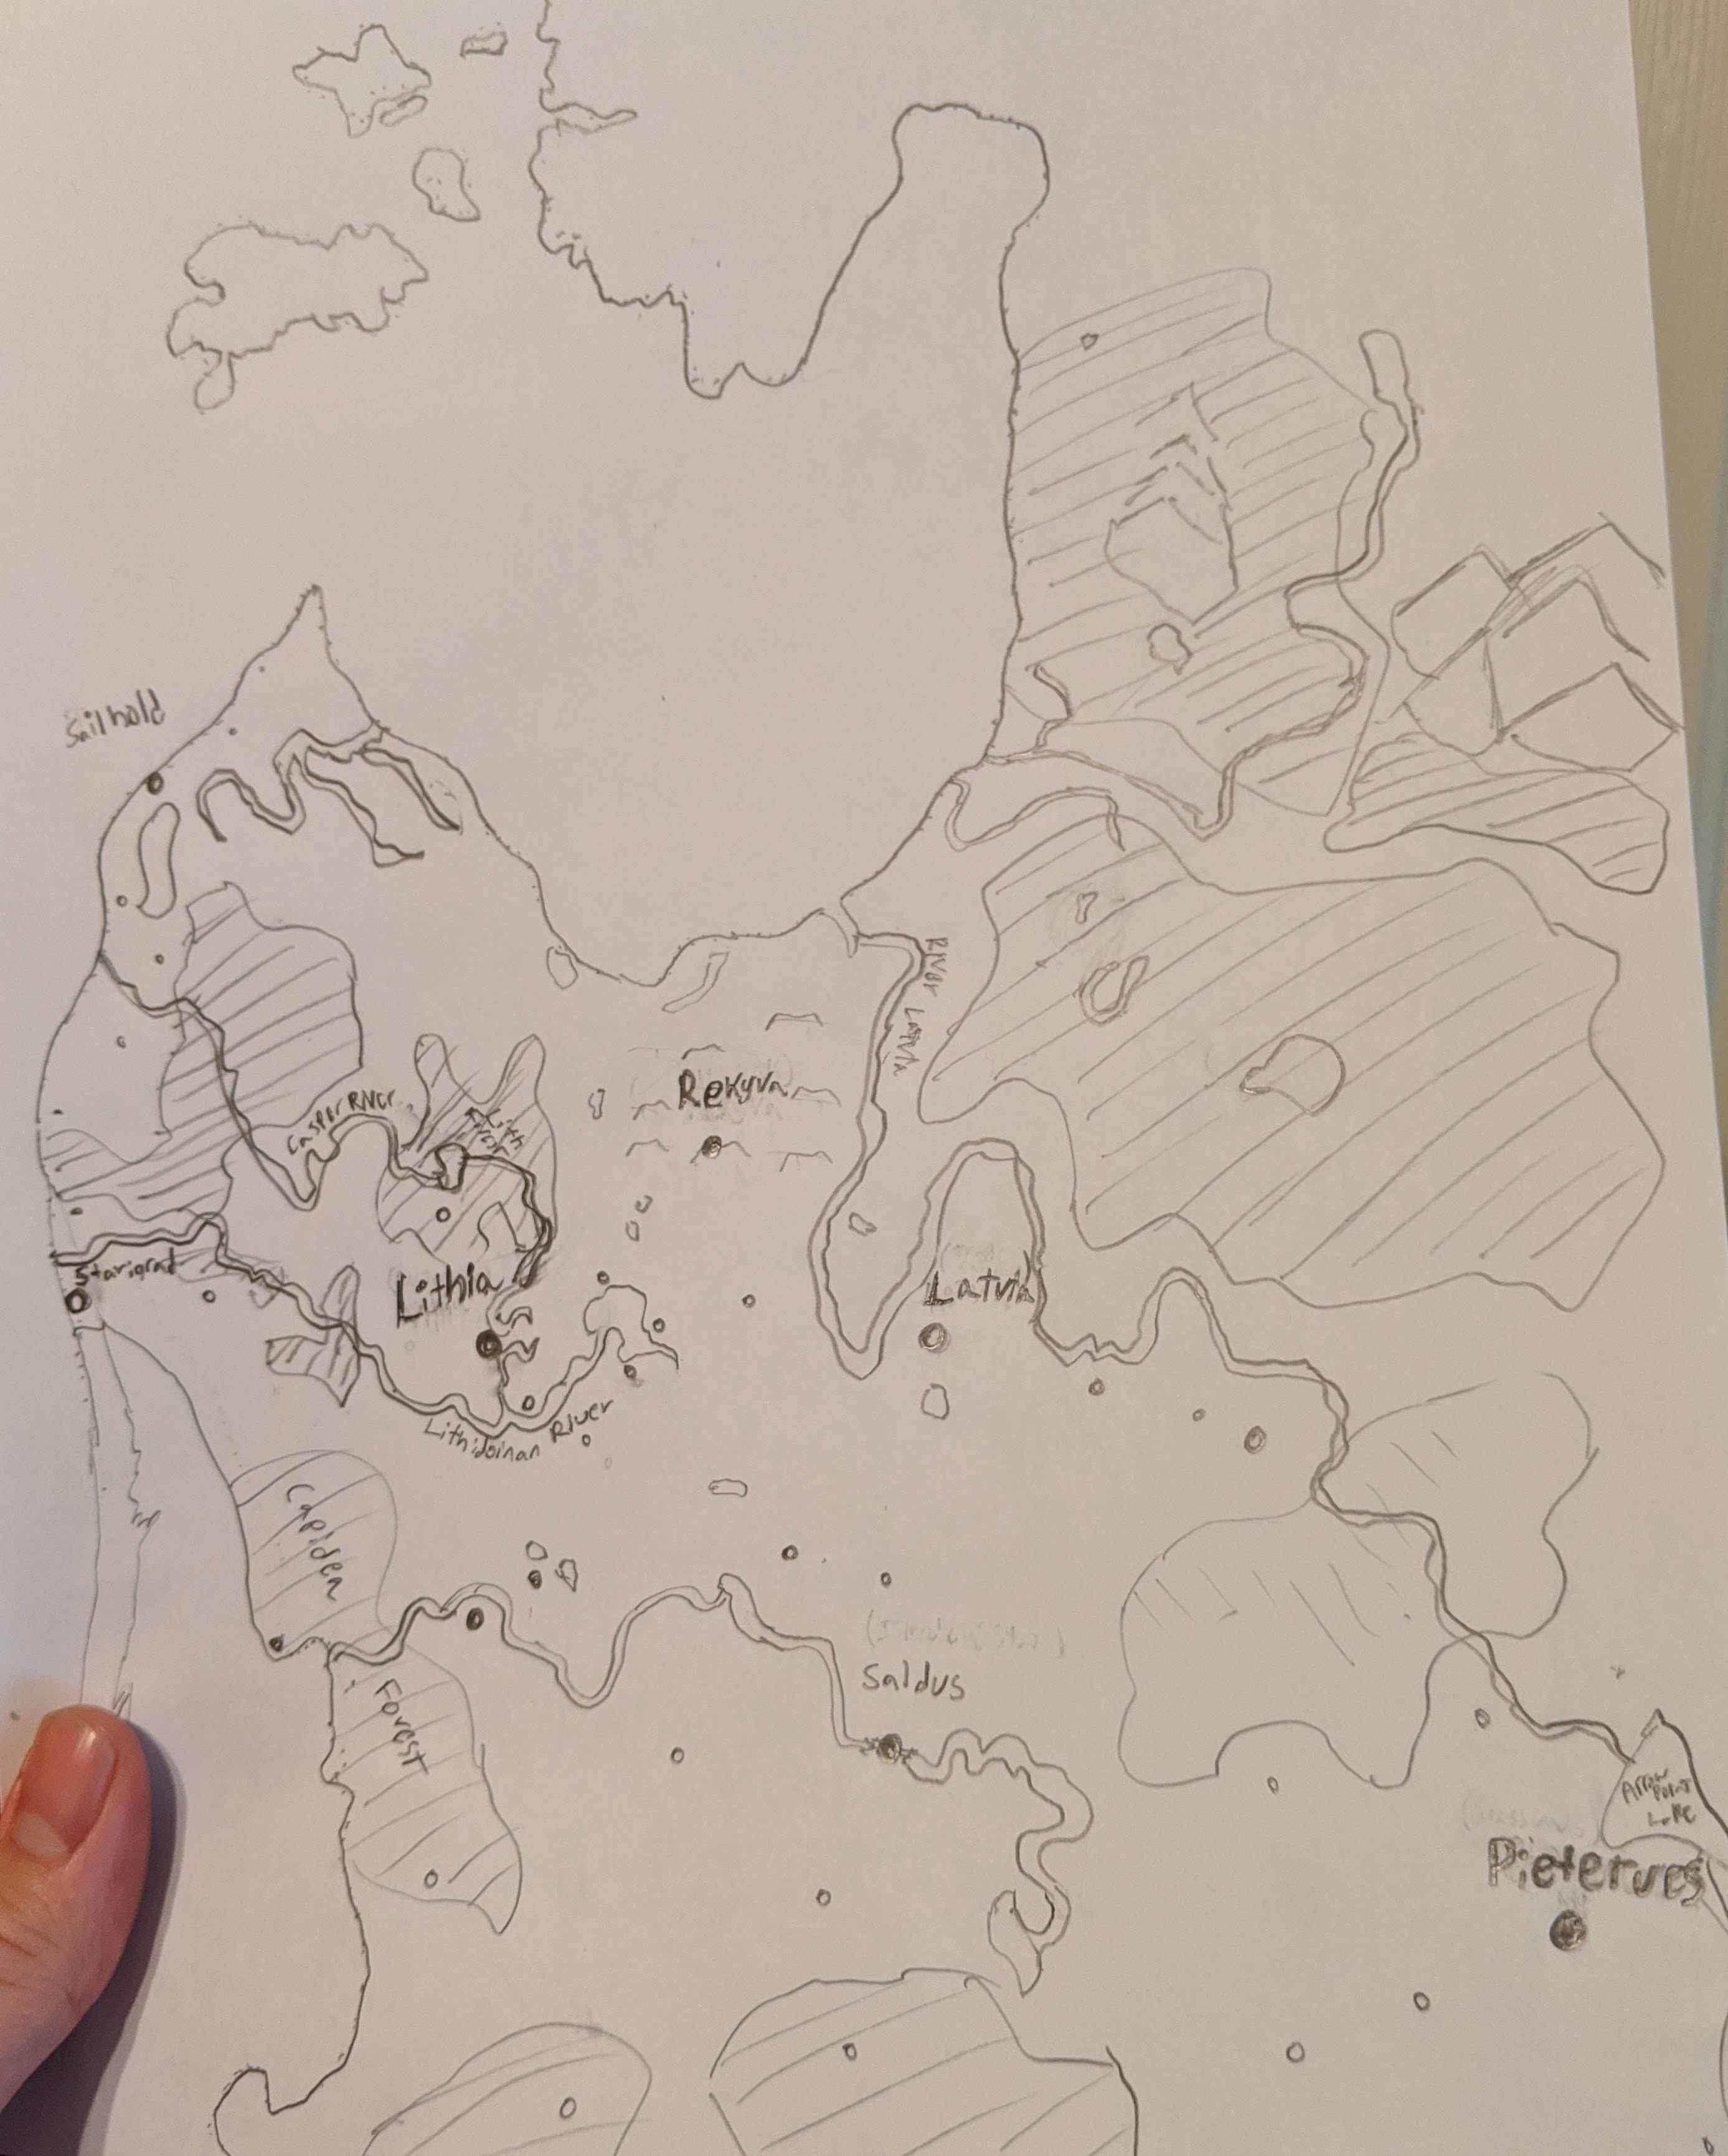 Sailhold
River Latvia
Rekyva
Casper River
Lith
Starigrad
Lithia
Latvia
Lithidoinan River
Capiden
Forest
Saldus
Arrow
Point
Lake
Pieterves